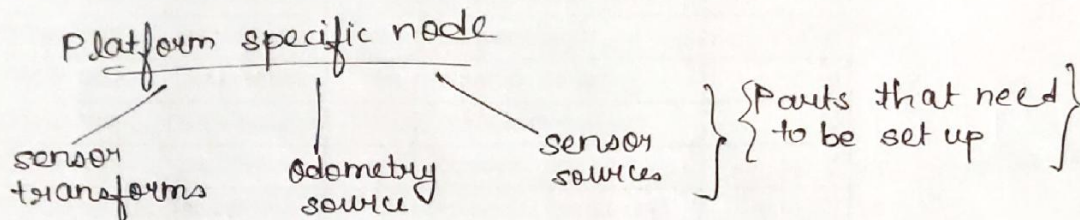 Platform specific node
sensor
transforms
odometry
source
sensor
sources
Parts that need
to be set up